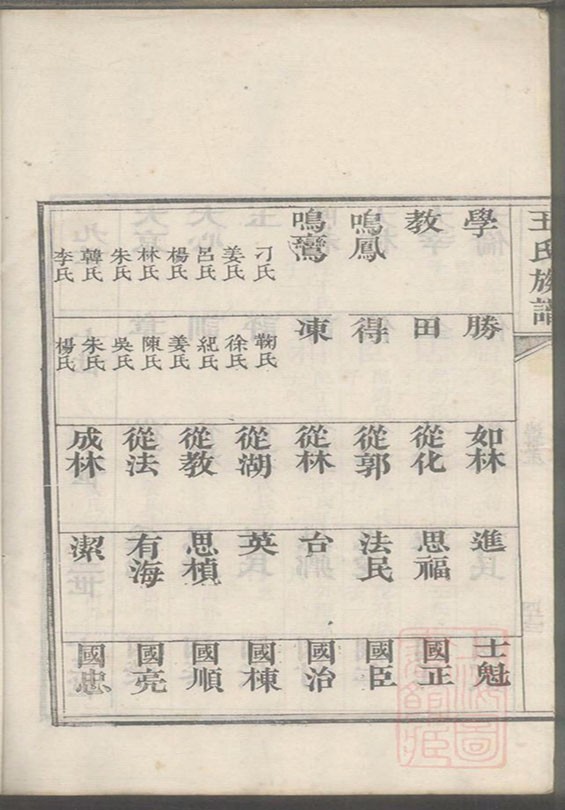 王氏族譜
學 教 鳴鳳 鳴鸞 刁氏 姜氏 呂氏 楊氏 林氏 朱氏 韓氏 李氏
勝 田 得 凍 鞠氏 徐氏 紀氏 姜氏 陳氏 吳氏 朱氏 楊氏
如林 從化 從郭 從林 從湖 從教 從法 成林
進 思福 法民 台 英 思楨 有海 潔
士魁 國正 國臣 國治 國棟 國順 國亮 國忠